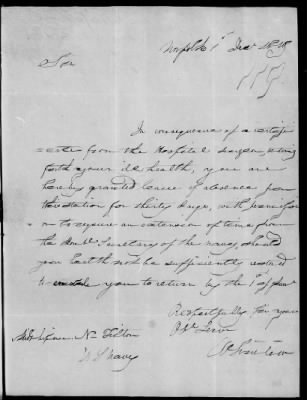 Norfolk 1st Decr 1818
Sir
In consequence of a certifi
cate from the Hospital Surgeon, setting
forth your ill health, you are
hereby granted leave of absence from
the station for thirty days, with permissi
on to require an extension of time from
the Honbl Secretary of the navy, should
your health not be sufficiently restored
to enable you to return by the 1st of
Respectfully Sir your
Obt Servt
Midshipman Nn Tilton
U S Navy